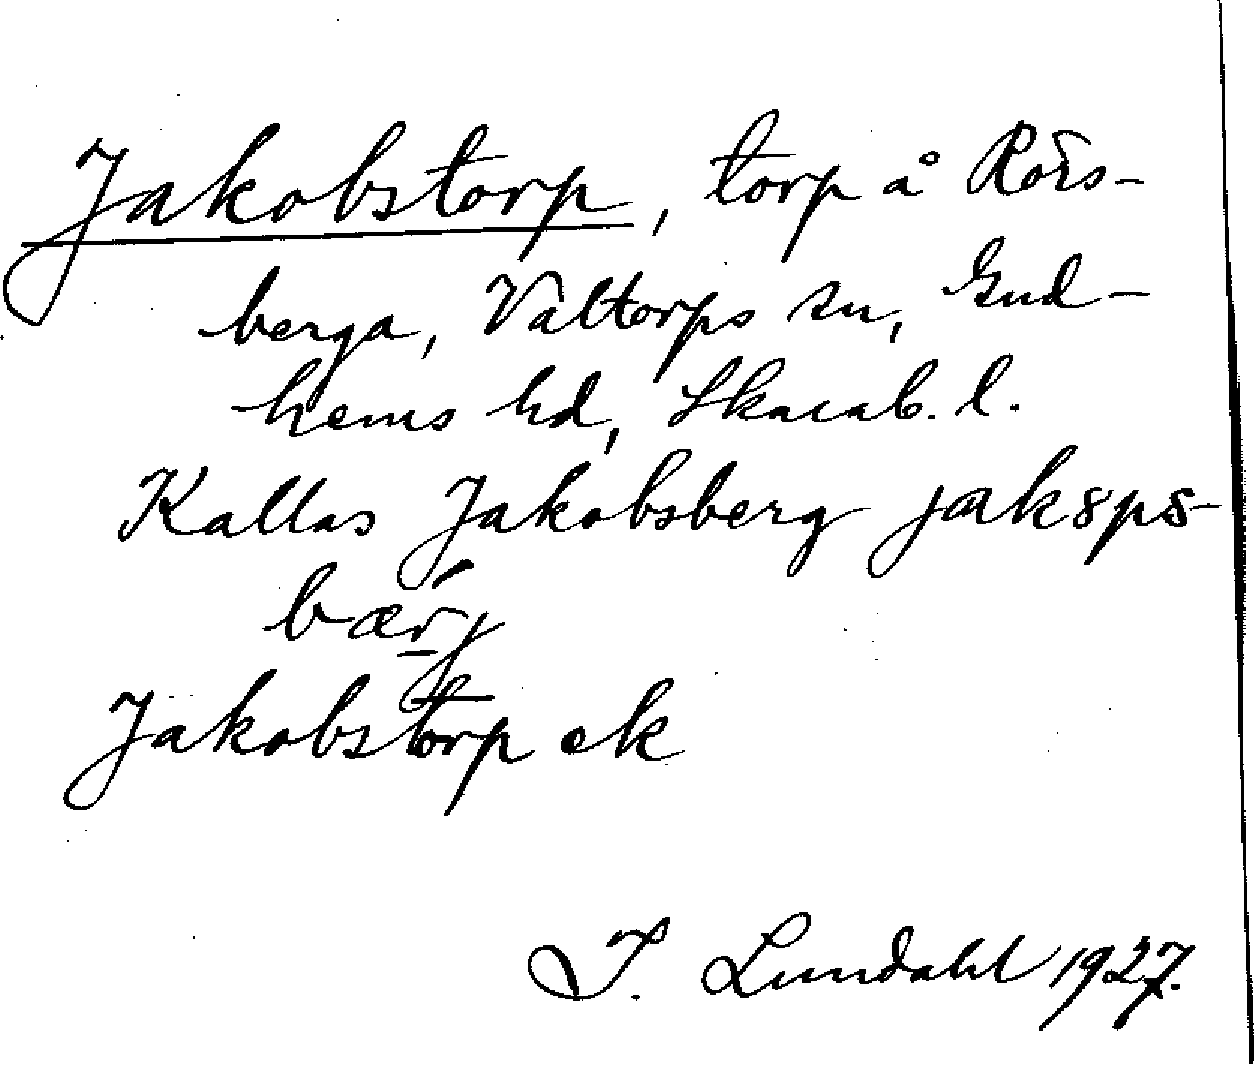 Jakobstorp, torp å Rörs-
berga, Valtorps sn, Gud-
hems hd, Skarab. l.
Kallas Jakobsberg jaksps-
bærj
Jakobstorp ek
I. Lundahl 1927.